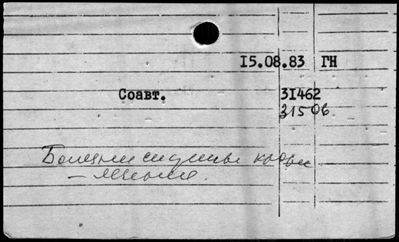 15.08.83 ГН
Соавт. 31462
31506
Болезни системы крови